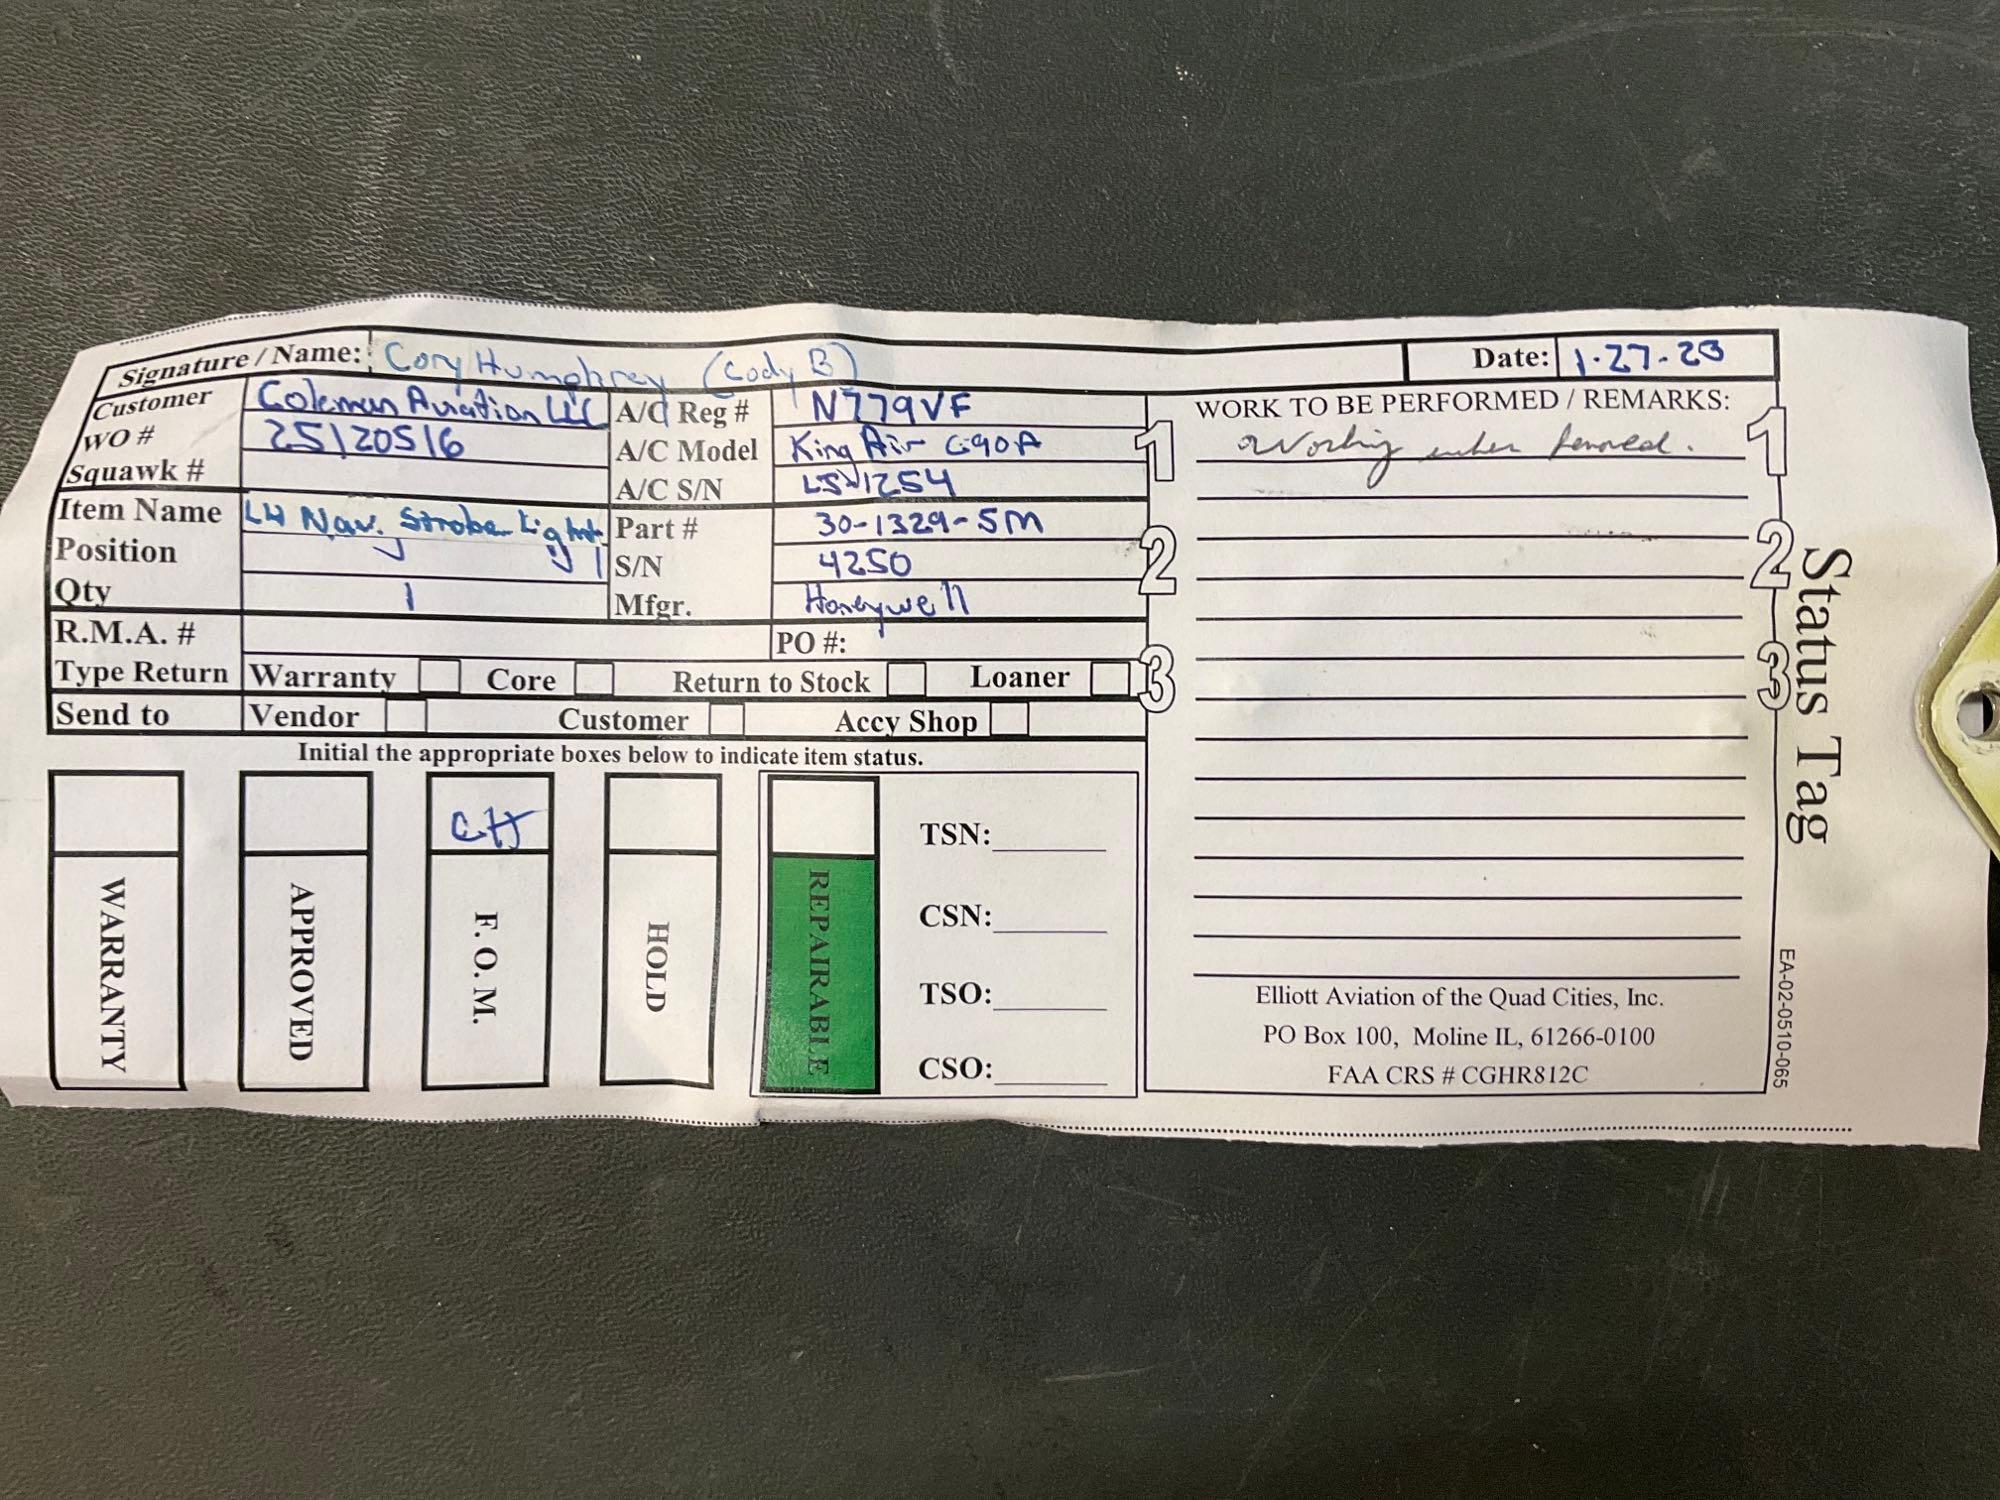 Signature / Name: Cory Humphrey (Cody B) Date: 1-27-23
Customer Coleman Aviation LLC A/C Reg # N779VF
WO # 25120516 A/C Model King Air C90A
Squawk # A/C S/N LJ-1254
Item Name LH Nav. Strobe Light Part # 30-1329-5M
Position S/N 4250
Qty 1 Mfgr. Honeywell
R.M.A. # PO #:
Type Return Warranty Core Return to Stock Loaner
Send to Vendor Customer Accy Shop
Initial the appropriate boxes below to indicate item status.
CH
WARRANTY
APPROVED
F. O. M.
HOLD
REPAIRABLE
TSN:
CSN:
TSO:
CSO:
1
2
3
WORK TO BE PERFORMED / REMARKS:
Working when removed.
1
2
3
Elliott Aviation of the Quad Cities, Inc.
PO Box 100, Moline IL, 61266-0100
FAA CRS # CGHR812C
Status Tag
EA-02-0510-065